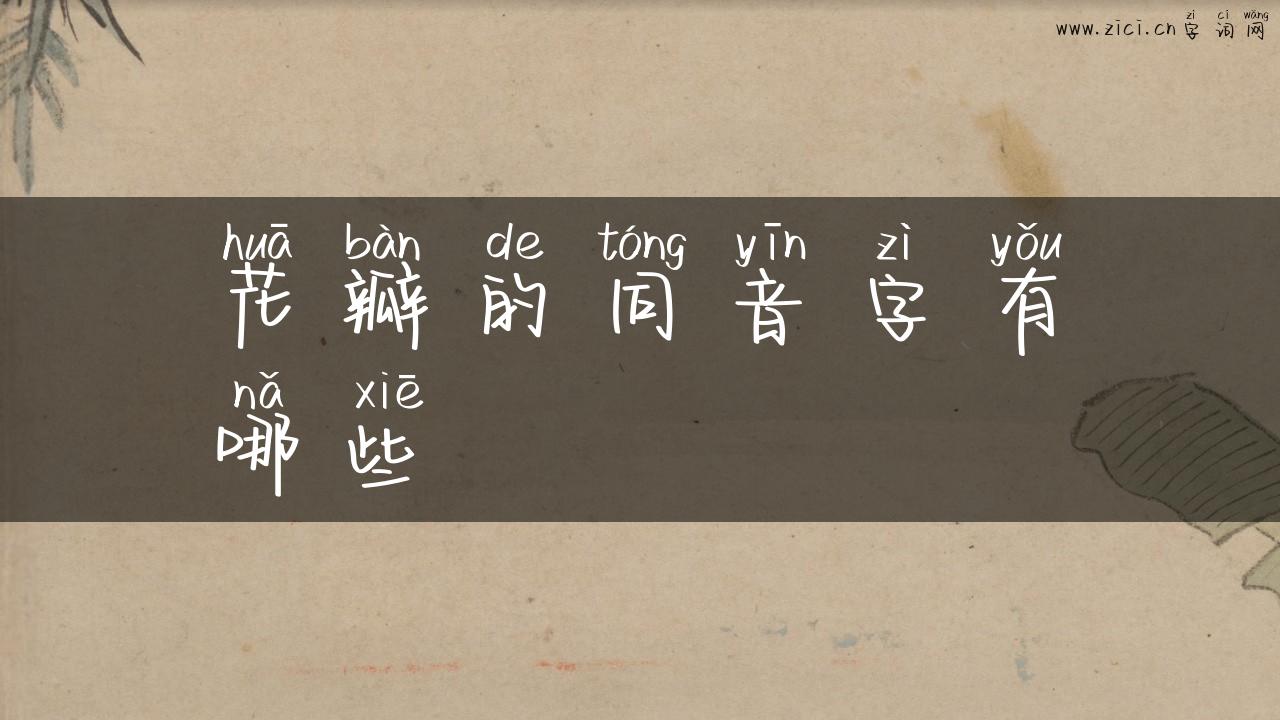 zì cí wǎng
www.zici.cn 字词网
huā bàn de tóng yīn zì yǒu
花瓣的同音字有
nǎ xiē
哪些